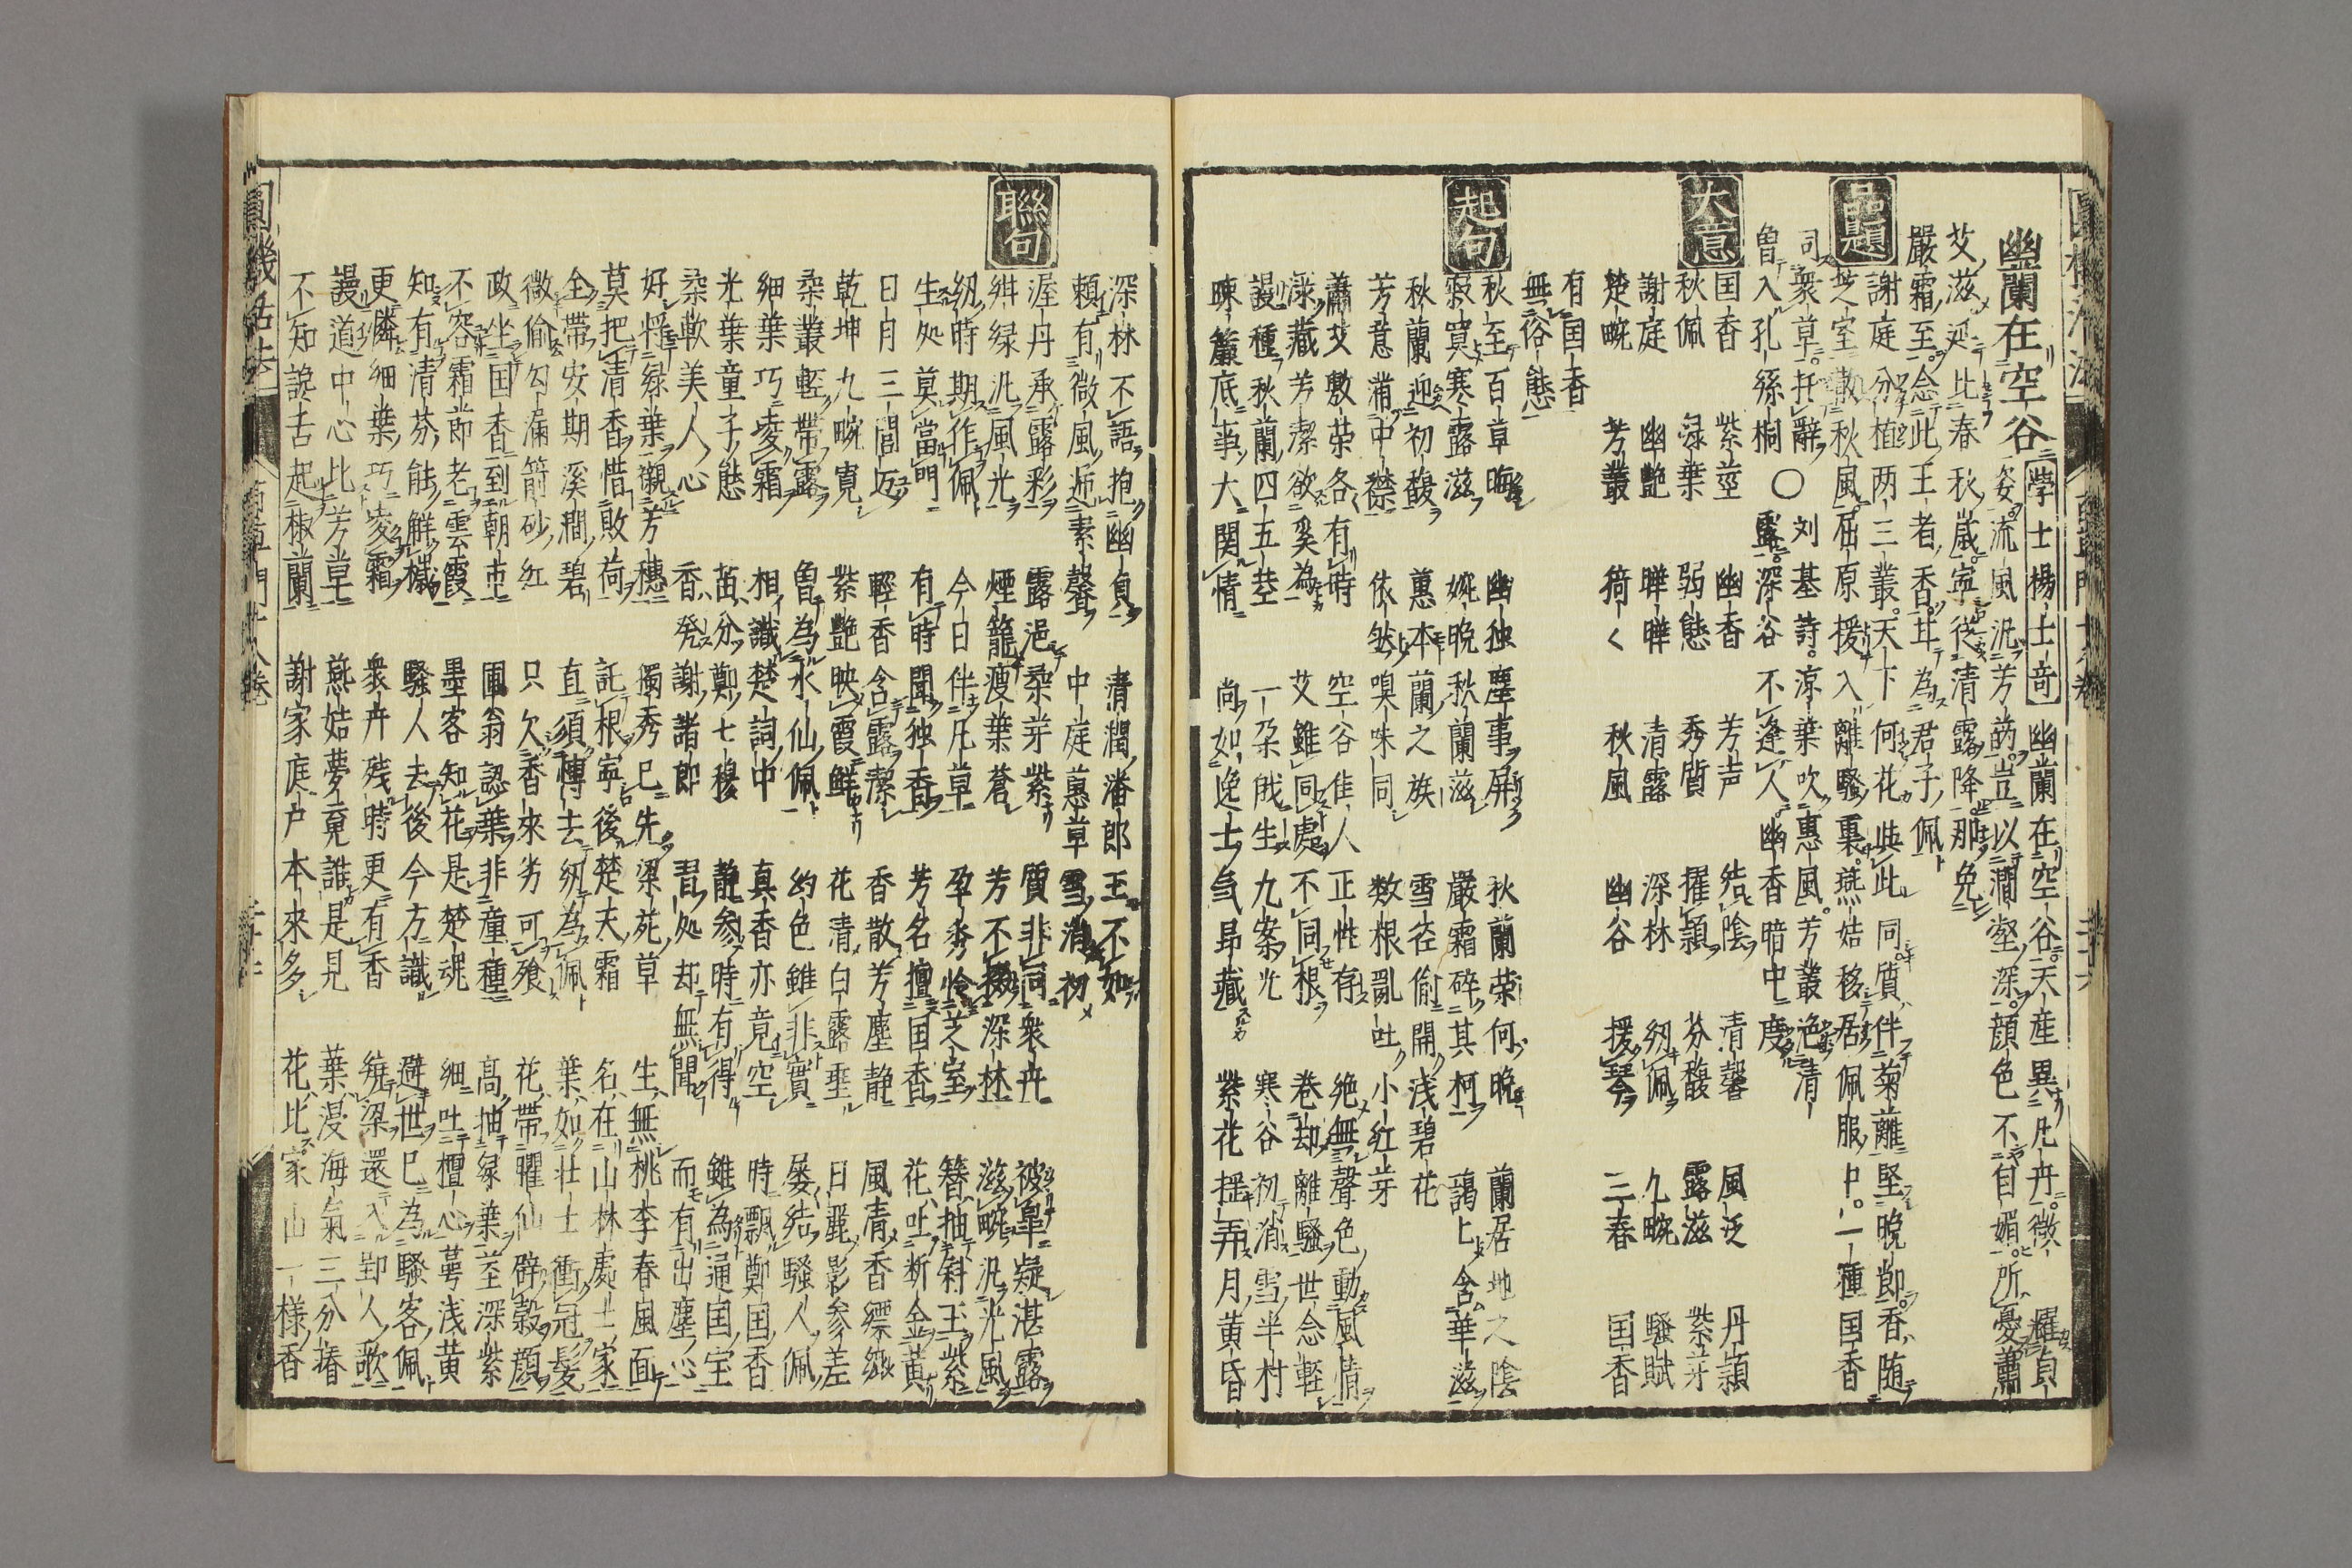 幽蘭在空谷 学士楊士奇 幽蘭在空谷天産異凡卉微
姿流風汎芳 豈以澗壑深顔色不自媚所憂蕭
艾滋延比春秋歳寕從清露降那免
嚴霜至念此王者香甘為君子佩
品題
謝庭分植两三叢天下何花与此同質伴菊離堅晩節香随
芝室散秋風屈原援入離騒裏燕姑移居佩服中一種国香
司衆草托辭〇刘基詩凉葉吹惠風芳叢浥清
曽入孔孫桐 露深谷不逢人幽香暗中度
大意
国香 紫莖 幽香 芳声 結陰 清馨 風泛 丹頴
秋佩 緑葉 弱態 秀質 擢頴 芬馥 露滋 紫芽
謝庭 幽艶 曄曄 清露 深林 紉佩 九畹 騒賦
楚畹 芳叢 猗く 秋風 幽谷 援琴 三春 国香
有国香
無俗態
起句
秋至百草晦 幽独塵事屏 秋蘭荣何晩 蘭居地之陰
寂寞寒露滋 婉晩秋蘭滋 嚴霜碎其柯 藹上含華滋
秋蘭迎初馥 蕙本蘭之族 雪径偷開浅碧花
芳意滿中襟 依然嗅味同 数根亂吐小紅芽
蕭艾敷荣各有時 空谷佳人正性存 絶無聲色動風情
深藏芳潔欲奚為 艾雖同處不同根 巻却離騒世念軽
謾種秋蘭四五莖 一朶俄生九案光 寒谷初消雪半村
疎簾底事大関情 尚如逸士気昻藏 紫花揺弄月黄昏
聯句
深林不語抱幽貞 清潤潘郎玉不如
頼有微風逓素聲 中庭蕙草雪消初
渥丹承露彩 露浥柔芽紫 質非同衆卉 被皐凝湛露
辨緑汎風光 煙籠痩葉蒼 芳不掇深林 滋畹汎光風
紉時期作佩 今日伴凡草 孕秀怜芝室 簪抽斜玉紫
生処莫當門 有時聞独香 芳名擅国香 花吐断金黄
日月三閭近 軽香含露潔 香散芳塵静 風清香縹緲
乾坤九畹寛 紫艶映霞鮮 花清白露垂 日麗影参差
柔叢軽帶露 曽為水仙佩 約色雖非實 屡結騒人佩
細葉巧凌霜 相識楚詞中 真香亦竟空 時飄鄭国香
光葉童子態 茁分鄭七穆 静参時有得 雖為通国宝
柔軟美人心 香発謝諸郎 習処却無聞 而有出塵心
好将緑葉襯芳穗 獨秀已先梁苑草 生無桃李春風面
莫把清香惜敗荷 託根寕後楚夫霜 名在山林處士家
全帶安期溪澗碧 直須傳去紉為佩 葉如壮士衝冠髪
微偷勾漏箭砂紅 只欠香來劣可飱 花帶曜仙辟穀顔
政坐国香到朝市 圃翁認葉非童種 髙抽緑葉莖深紫
不容霜節老雲霞 墨客知花是楚魂 細吐檀心萼浅黄
知有清芬能鮮穢 騒人去後今方識 避世已為騒客佩
更憐細葉巧凌霜 衆卉残時更有香 繞梁還入郢人歌
謾道中心比芳草 燕姞夢竟誰是見 葉浸海氣三分椿
不知説舌起椒蘭 謝家庭戸本來多 花比家山一様香